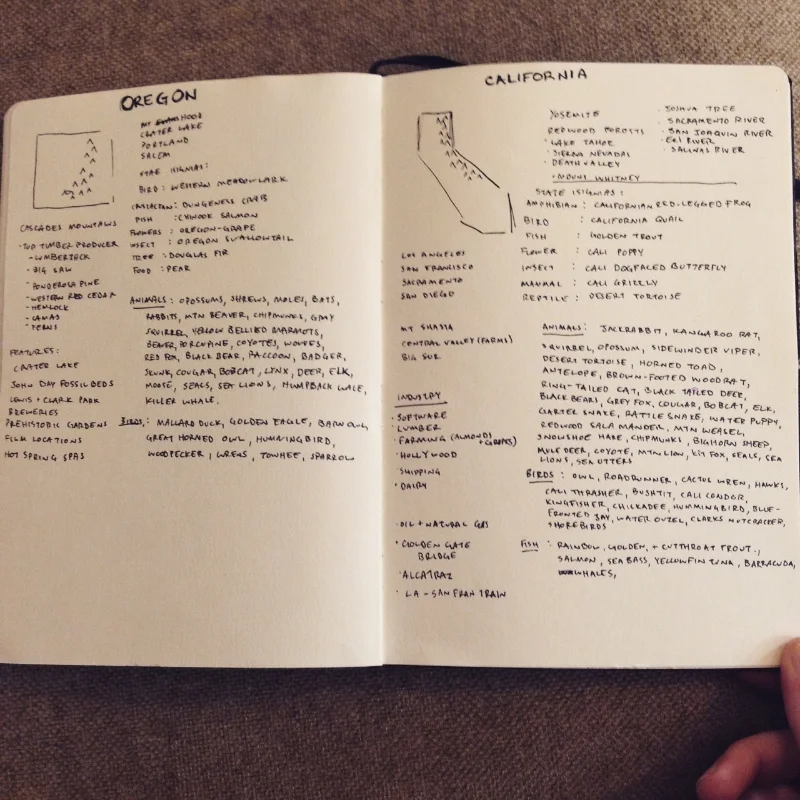 OREGON
HOOD
CRATER LAKE
PORTLAND
SALEM
STATE ISIGNIAS:
BIRD: WESTERN MEADOWLARK
: DUNGENESS CRAB
FISH : CHINOOK SALMON
FLOWERS : OREGON-GRAPE
INSECT : OREGON SWALLOWTAIL
TREE : DOUGLAS FIR
FOOD : PEAR
CASCADES MOUNTAINS
• TOP TIMBER PRODUCER
- LUMBERJACK
- BIG SAW
- PONDEROSA PINE
- WESTERN RED CEDAR
- HEMLOCK
- CAMAS
- FERNS
FEATURES:
CRATER LAKE
JOHN DAY FOSSIL BEDS
LEWIS + CLARK PARK
BREWERIES
PREHISTORIC GARDENS
FILM LOCATIONS
HOT SPRING SPAS
ANIMALS : OPOSSUMS, SHREWS, MOLES, BATS,
RABBITS, MTN BEAVER, CHIPMUNKS, GRAY
SQUIRREL, YELLOW BELLIED MARMOTS,
BEAVER, PORCUPINE, COYOTES, WOLVES,
RED FOX, BLACK BEAR, RACCOON, BADGER,
SKUNK, COUGAR, BOBCAT, LYNX, DEER, ELK,
MOOSE, SEALS, SEA LIONS, HUMPBACK WALE,
KILLER WHALE.
BIRDS: MALLARD DUCK, GOLDEN EAGLE, BARN OWL,
GREAT HORNED OWL, HUMINGBIRD,
WOODPECKER, WRENS, TOWHEE, SPARROW
CALIFORNIA
YOSEMITE
REDWOOD FORESTS
• LAKE TAHOE
• SIERRA NEVADAS
• DEATH VALLEY
• MOUNT WHITNEY
• JOSHUA TREE
• SACRAMENTO RIVER
• SAN JOAQUIN RIVER
• EEL RIVER
• SALINAS RIVER
STATE ISIGNIAS :
AMPHIBIAN : CALIFORNIAN RED-LEGGED FROG
BIRD : CALIFORNIA QUAIL
FISH : GOLDEN TROUT
FLOWER : CALI POPPY
INSECT : CALI DOGFACED BUTTERFLY
MAMMAL : CALI GRIZZLY
REPTILE : DESERT TORTOISE
LOS ANGELES
SAN FRANCISCO
SACRAMENTO
SAN DIEGO
MT SHASTA
CENTRAL VALLEY (FARMS)
BIG SUR
INDUSTRY
• SOFTWARE
• LUMBER
• FARMING (ALMONDS + GRAPES)
• HOLLYWOOD
• SHIPPING
• DAIRY
• OIL + NATURAL GAS
• GOLDEN GATE
BRIDGE
• ALCATRAZ
• LA - SAN FRAN TRAIN
ANIMALS: JACKRABBIT, KANGAROO RAT,
SQUIRREL, OPOSSUM, SIDEWINDER VIPER,
DESERT TORTOISE, HORNED TOAD,
ANTELOPE, BROWN-FOOTED WOODRAT,
RING-TAILED CAT, BLACK TAILED DEER,
BLACK BEARS, GREY FOX, COUGAR, BOBCAT, ELK,
GARTER SNAKE, RATTLE SNAKE, WATER PUPPY,
REDWOOD SALAMANDER, MTN WEASEL,
SNOWSHOE HARE, CHIPMUNKS, BIGHORN SHEEP,
MULE DEER, COYOTE, MTN LION, KIT FOX, SEALS, SEA
LIONS, SEA OTTERS
BIRDS : OWL, ROADRUNNER, CACTUS WREN, HAWKS,
CALI THRASHER, BUSHTIT, CALI CONDOR,
KINGFISHER, CHICKADEE, HUMMINGBIRD, BLUE-
FRONTED JAY, WATER OUZEL, CLARKS NUTCRACKER,
SHOREBIRDS
FISH : RAINBOW, GOLDEN, + CUTTHROAT TROUT.,
SALMON, SEA BASS, YELLOWFIN TUNA, BARRACUDA,
WHALES,